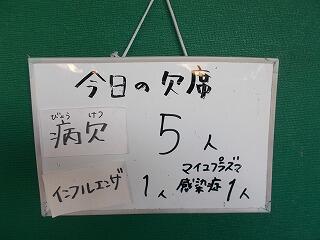 今日の欠席
びょう けつ
病欠 5人
インフルエンザ 1人
マイコプラズマ
感染症 1人